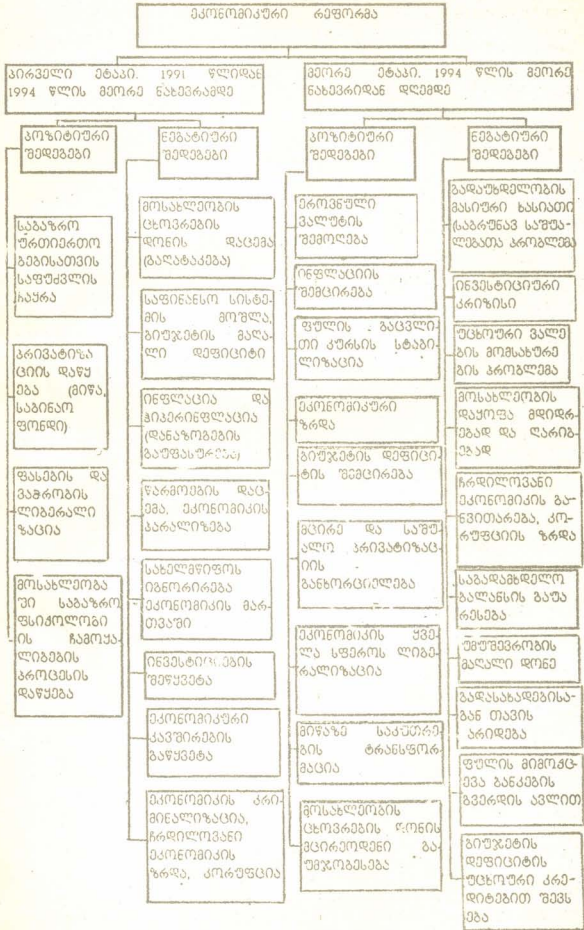 ეკონომიკური რეფორმა
პირველი ეტაპი. 1991 წლიდან
1994 წლის მეორე ნახევრამდე
პოზიტიური
შედეგები
საბაზრო
ურთიერთო
ბებისათვის
საფუძვლის
ჩაყრა
პრივატიზა
ციის დაწყ
ება (მიწა,
საბინაო
ფონდი)
ფასების და
ვაჭრობის
ლიბერალი
ზაცია
მოსახლეობა
ში საბაზრო
ფსიქოლოგი
ის ჩამოყა
ლიბების
პროცესის
დაწყება
ნეგატიური
შედეგები
მოსახლეობის
ცხოვრების
დონის დაცემა
(გაღატაკება)
საფინანსო სისტე
მის მოშლა,
ბიუჯეტის მაღა
ლი დეფიციტი
ინფლაცია და
ჰიპერინფლაცია
(დანაზოგების
გაუფასურება)
წარმოების დაც
ემა, ეკონომიკის
პარალიზება
სახელმწიფოს
იგნორირება
ეკონომიკის მარ
თვაში
ინვესტიციების
შეწყვეტა
ეკონომიკური
კავშირების
გაწყვეტა
ეკონომიკის კრი
მინალიზაცია,
ჩრდილოვანი
ეკონომიკის
ზრდა, კორუფცია
მეორე ეტაპი. 1994 წლის მეორე
ნახევრიდან დღემდე
პოზიტიური
შედეგები
ეროვნული
ვალუტის
შემოღება
ინფლაციის
შემცირება
ფულის გაცვლი
თი კურსის სტაბი
ლიზაცია
ეკონომიკური
ზრდა
ბიუჯეტის დეფიცი
ტის შემცირება
მცირე და საშუ
ალო პრივატიზაც
იის
განხორციელება
ეკონომიკის ყვე
ლა სფეროს ლიბე
რალიზაცია
მიწაზე საკუთრე
ბის ტრანსფორ
მაცია
მოსახლეობის
ცხოვრების დონის
მცირეოდენი გა
უმჯობესება
ნეგატიური
შედეგები
გადაუხდელობის
მასიური ხასიათი
(საბრუნავ საშუა
ლებათა პრობლემა
ინვესტიციური
კრიზისი
უცხოური ვალე
ბის მომსახურე
ბის პრობლემა
მოსახლეობის
დაყოფა მდიდრ
ებად და ღარიბ
ებად
ჩრდილოვანი
ეკონომიკის გა
ნვითარება, კო
რუფციის ზრდა
საგადამხდელო
ბალანსის გაუა
რესება
უმუშევრობის
მაღალი დონე
გადასახადებისა
გან თავის
არიდება
ფულის მიმოქც
ევა ბანკების
გვერდის ავლით
ბიუჯეტის
დეფიციტის
უცხოური კრე
დიტებით შევს
ება